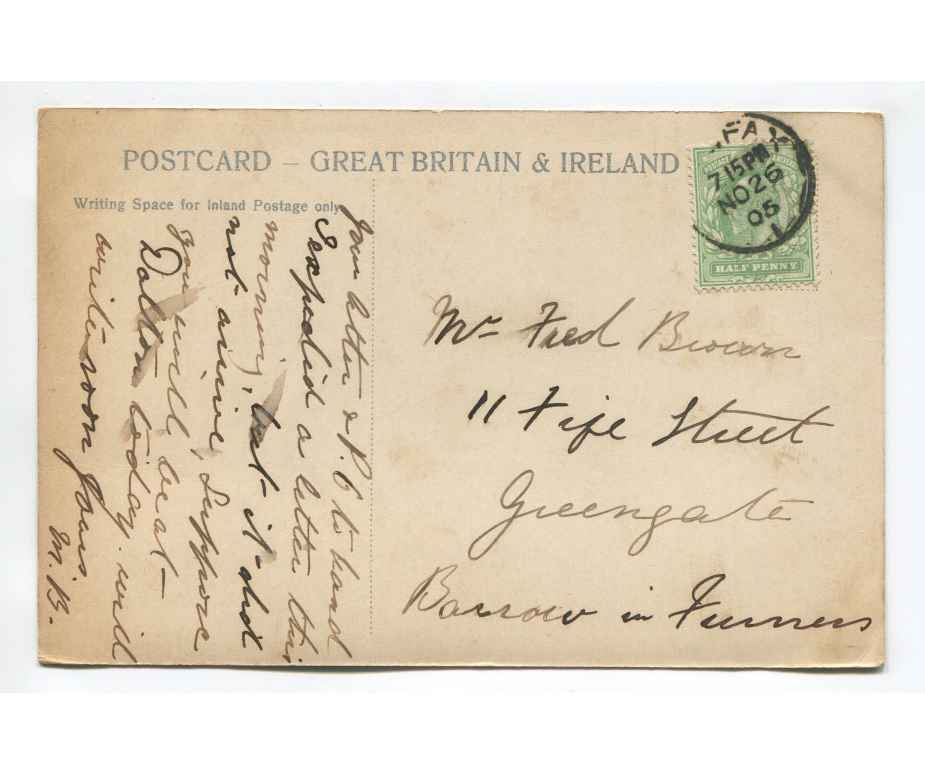 POSTCARD – GREAT BRITAIN & IRELAND
Writing Space for Inland Postage only
FAX
7 15 PM
NO 26
05
1
HALF PENNY
Your letter & P.C to hand
I expected a letter this
morning, but it did
not arrive, suppose
you will be at
Dalton today. will
write soon Yours
M.B.
Mr Fred Brown
11 Fife Street
Greengate
Barrow in Furness